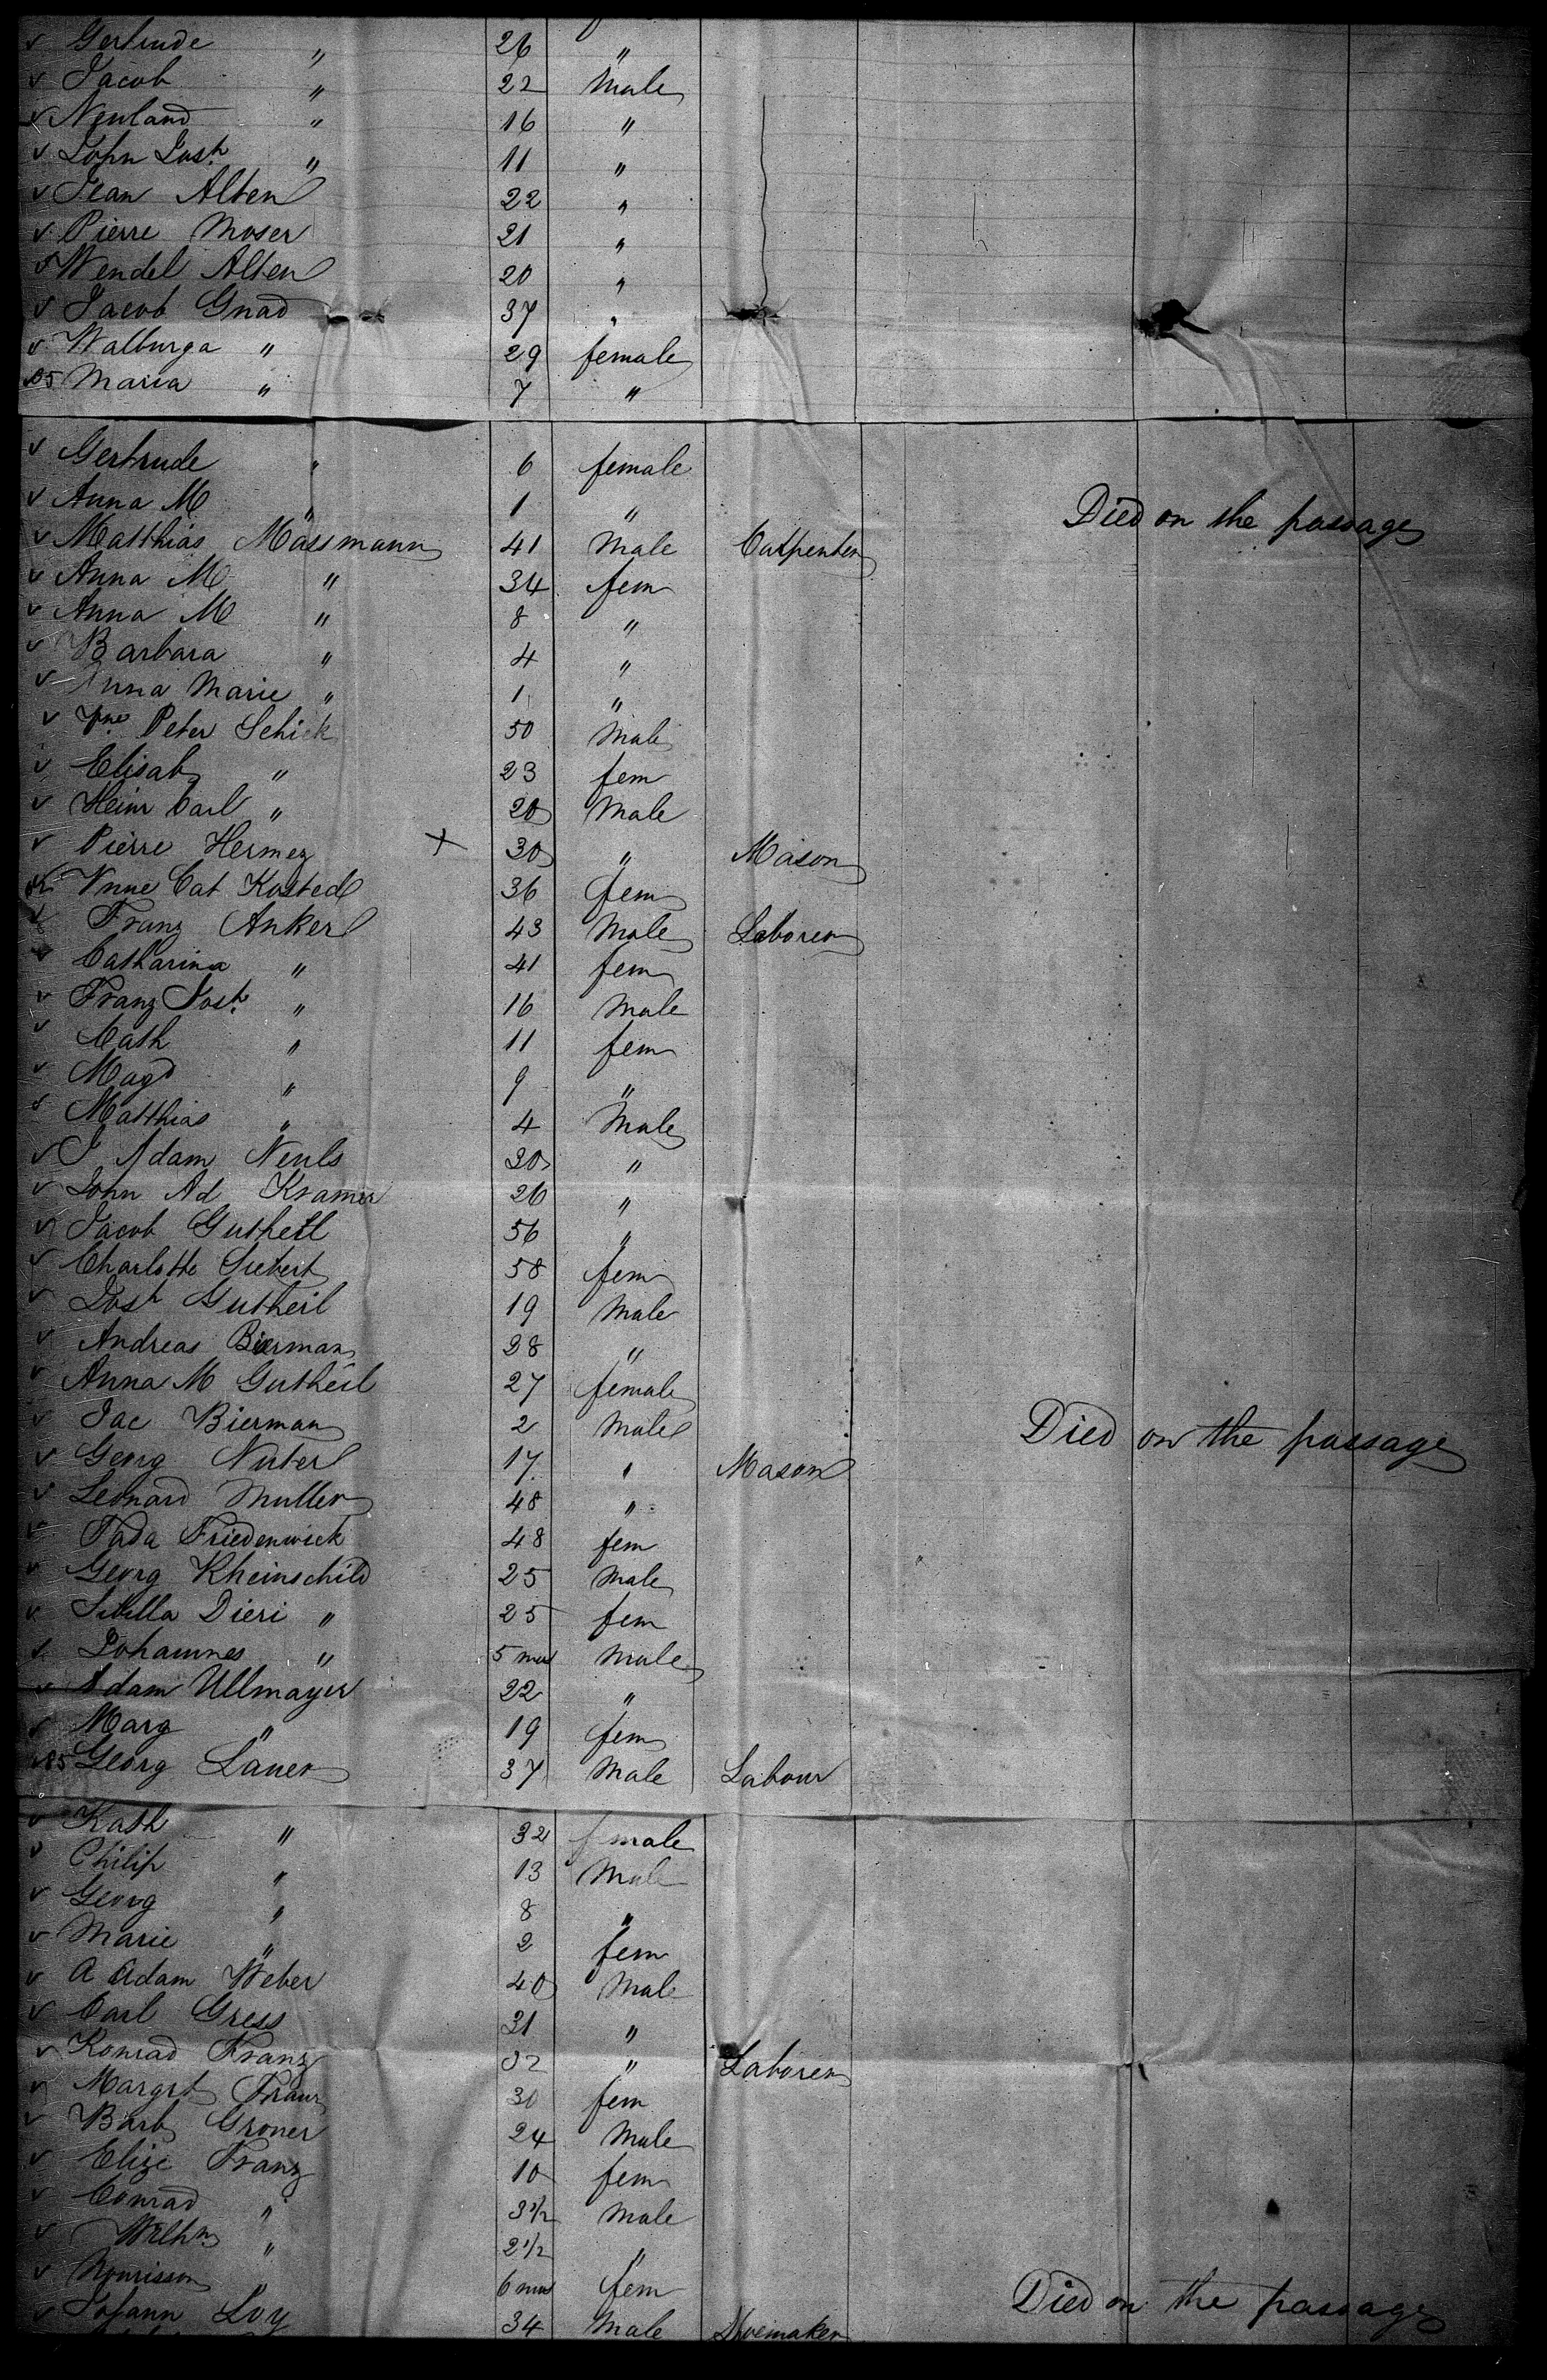 Gertrude " 26 "
Jacob " 22 Male
Neuland " 16 "
John Josh " 11 "
Jean Alten 22 "
Pierre Moser 21 "
Wendel Alten 20 "
Jacob Gnad 37 "
Walburga " 29 female
Maria " 7 "
Gertrude " 6 female
Anna M " 1 " Died on the passage
Matthias Massmann 41 Male Carpenter
Anna M " 34 fem
Anna M " 8 "
Barbara " 4 "
Anna Marie " 1 "
Peter Schick 50 Male
Elisab " 23 fem
Heinr Carl " 20 Male
Pierre Hermez + 30 " Mason
Anne Cat Kosted 36 fem
Franz Anker 43 Male Laborer
Catharina " 41 fem
Franz Josh " 16 Male
Cath " 11 fem
Magd " 9 "
Matthias " 4 Male
J Adam Neuls 30 "
John Ad Kramer 26 "
Jacob Gutheil 56 "
Charlotte Siebert 58 fem
Josh Gutheil 19 Male
Andreas Bierman 28 "
Anna M Gutheil 27 female
Jac Bierman 2 Male Died on the passage
Georg Nuter 17 " Mason
Leonard Muller 48 "
Friedenwick 48 fem
Georg Rheinschild 25 Male
Sibilla Dieri " 25 fem
Johannes " 5 mos Male
Adam Ullmayer 22 "
Marg " 19 fem
85 Georg Lauer 37 Male Labour
Kath " 32 female
Philip " 13 Male
Georg " 8 "
Marie " 2 fem
A Adam Weber 40 Male
Carl Gress 31 "
Konrad Franz 32 " Laborer
Margret Franz 30 fem
Barb Groner 24 Male
Elize Franz 10 fem
Conrad " 3 1/2 Male
Wilhm " 2 1/2 "
Nourisson " 6 mos fem Died on the passage
Johann Loy 34 Male Shoemaker